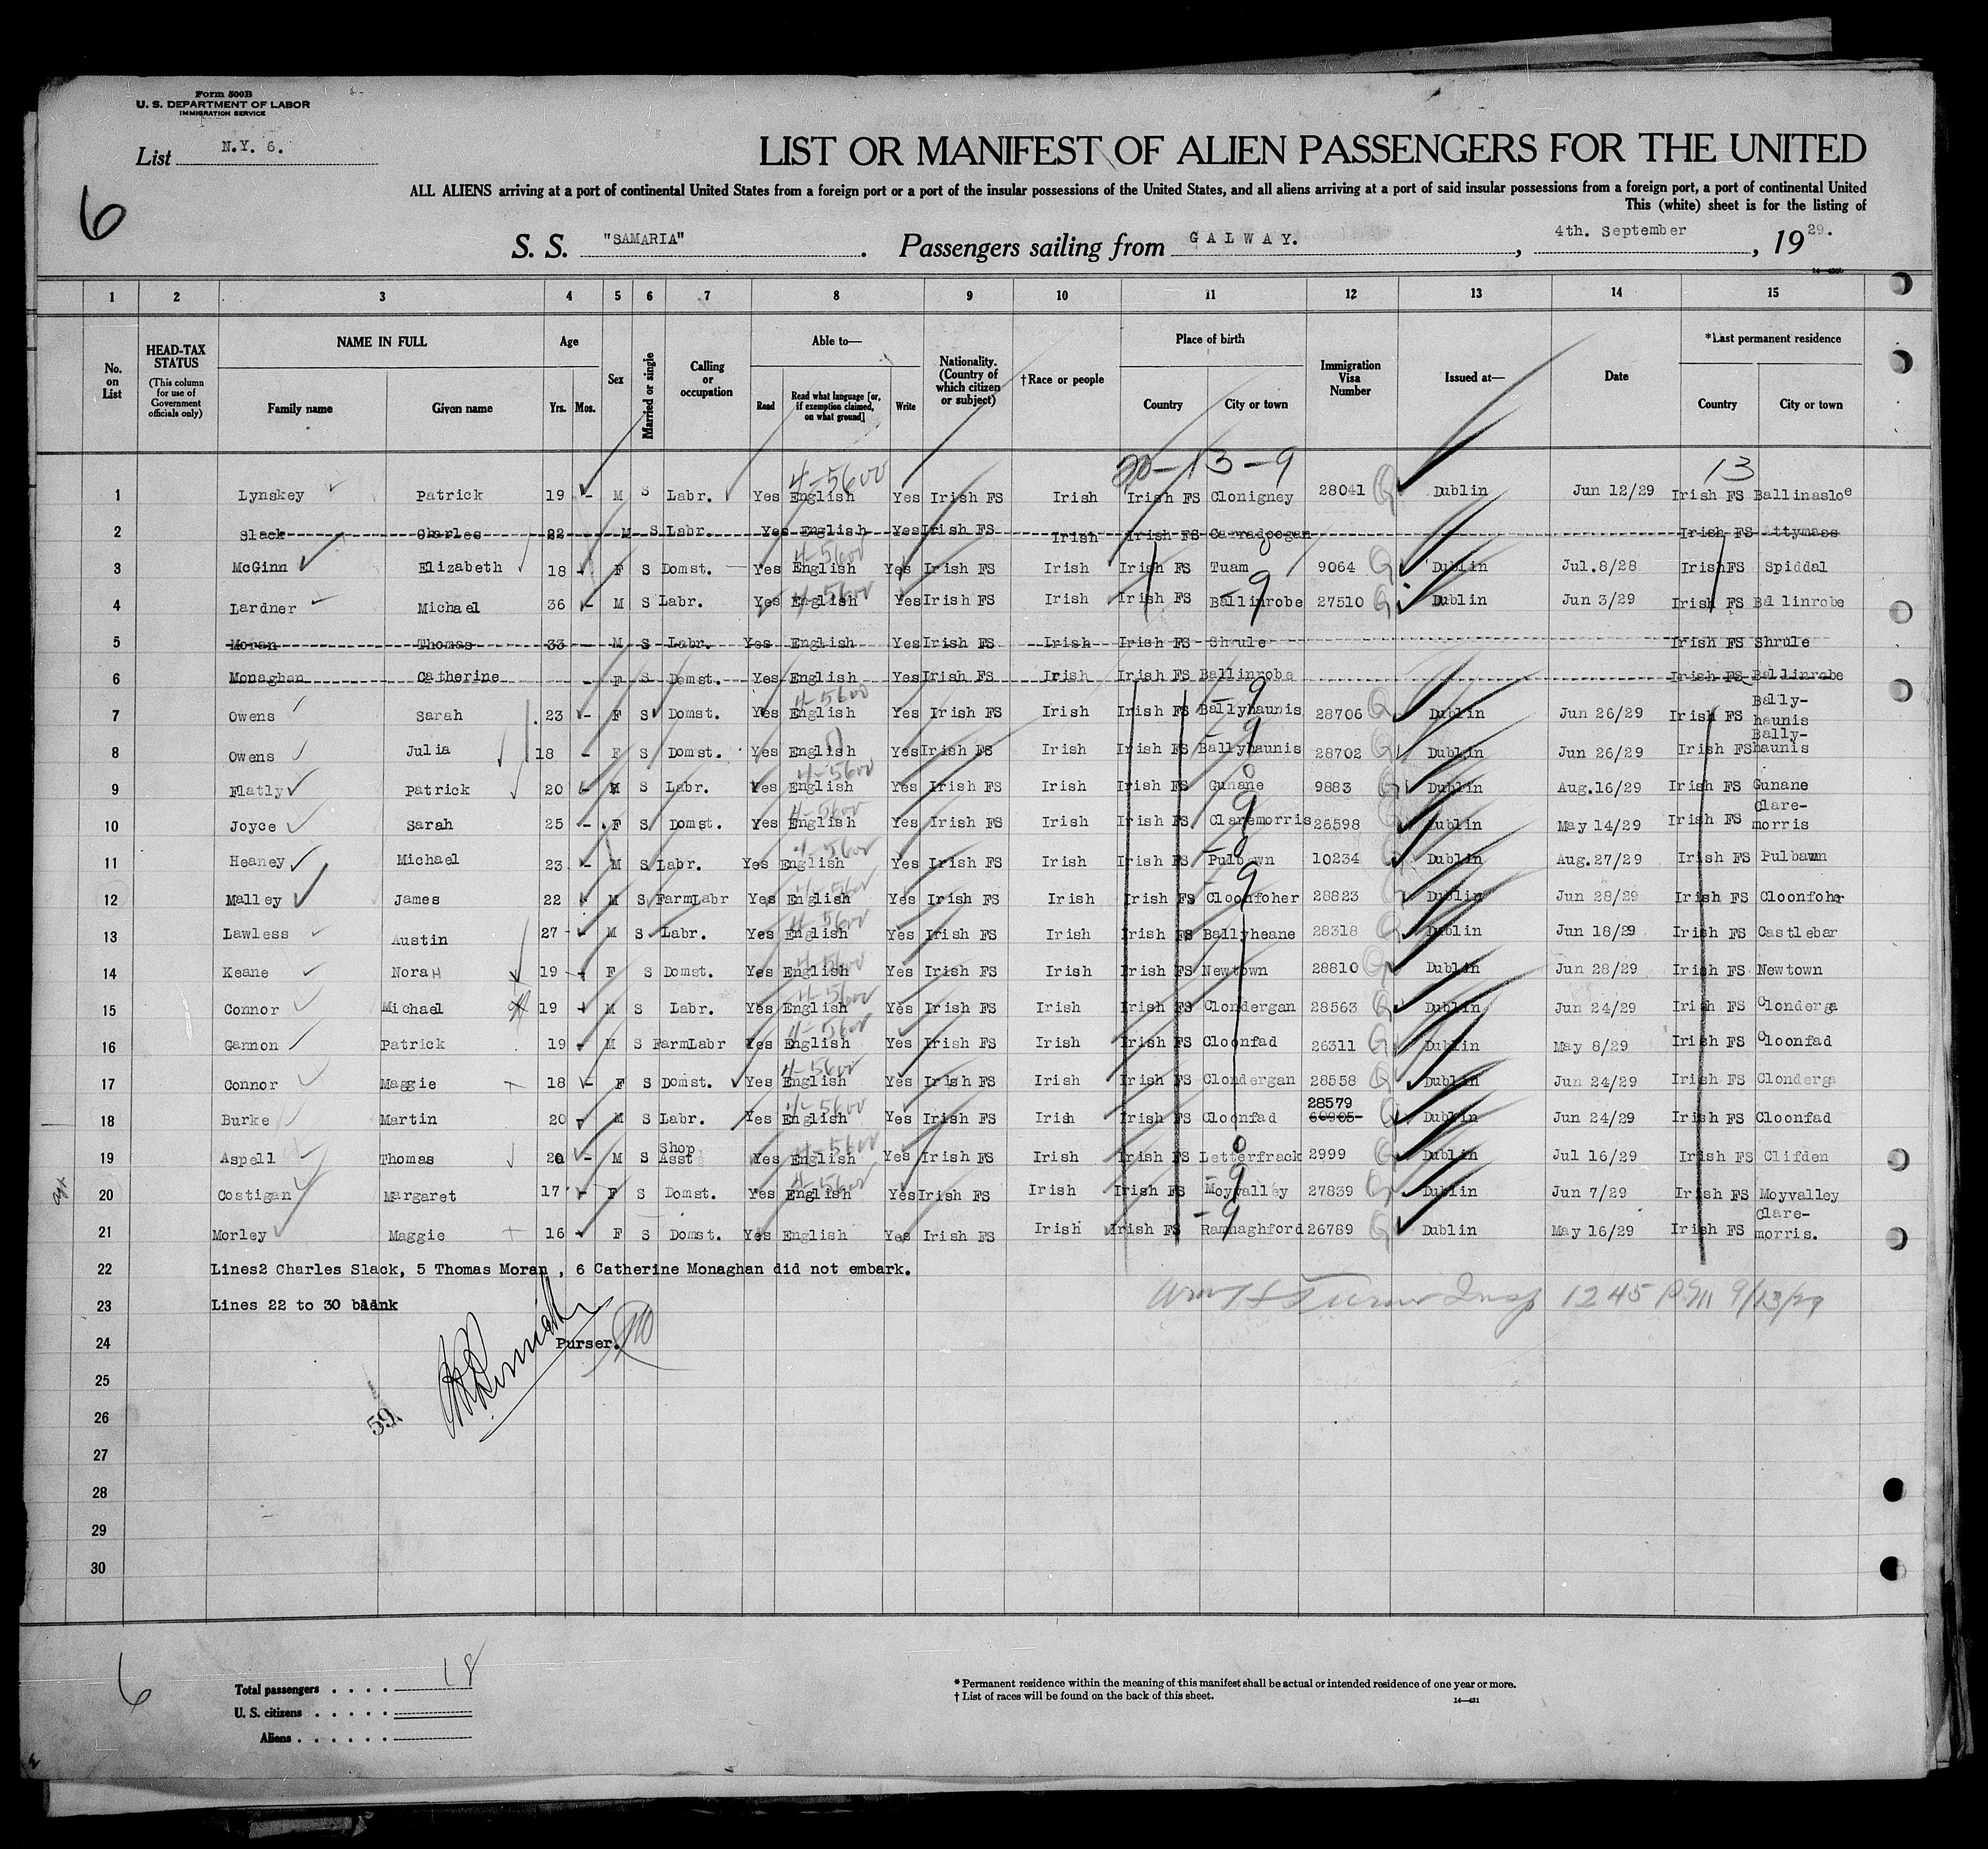 Form 500B
U. S. DEPARTMENT OF LABOR
IMMIGRATION SERVICE
List N.Y. 6.
6
LIST OR MANIFEST OF ALIEN PASSENGERS FOR THE UNITED
ALL ALIENS arriving at a port of continental United States from a foreign port or a port of the insular possessions of the United States, and all aliens arriving at a port of said insular possessions from a foreign port, a port of continental United
This (white) sheet is for the listing of
S. S. "SAMARIA". Passengers sailing from GALWAY., 4th. September, 1929.
1 2 3 4 5 6 7 8 9 10 11 12 13 14 15
No. on List
HEAD-TAX STATUS (This column for use of Government officials only)
NAME IN FULL Family name Given name
Age Yrs. Mos.
Sex
Married or single
Calling or occupation
Able to— Read Read what language [or, if exemption claimed, on what ground] Write
Nationality. (Country of which citizen or subject)
†Race or people
Place of birth Country City or town
Immigration Visa Number
Issued at—
Date
*Last permanent residence Country City or town
4-5600 20-13-9 13
1 Lynskey Patrick 19 - M S Labr. Yes English Yes Irish FS Irish Irish FS Clonigney 28041 Dublin Jun 12/29 Irish FS Ballinasloe
2 Slack Charles 22 - M S Labr. Yes English Yes Irish FS Irish Irish FS Carradoogan Irish FS Attymass
3 McGinn Elizabeth 18 - F S Domst. Yes English Yes Irish FS Irish Irish FS Tuam 9064 Dublin Jul.8/28 IrishFS Spiddal
4 Lardner Michael 36 - M S Labr. Yes English Yes Irish FS Irish Irish FS Ballinrobe 27510 Dublin Jun 3/29 Irish FS Ballinrobe
5 Moran Thomas 33 - M S Labr. Yes English Yes Irish FS Irish Irish FS Shrule Irish FS Shrule
6 Monaghan Catherine - F S Domst. Yes English Yes Irish FS Irish Irish FS Ballinrobe Irish FS Ballinrobe
7 Owens Sarah 23 - F S Domst. Yes English Yes Irish FS Irish Irish FS Ballyhaunis 28706 Dublin Jun 26/29 Irish FS Bally-haunis
8 Owens Julia 18 - F S Domst. Yes English Yes Irish FS Irish Irish FS Ballyhaunis 28702 Dublin Jun 26/29 Irish FS Bally-haunis
9 Flatly Patrick 20 - M S Labr. Yes English Yes Irish FS Irish Irish FS Gunane 9883 Dublin Aug.16/29 Irish FS Gunane
10 Joyce Sarah 25 - F S Domst. Yes English Yes Irish FS Irish Irish FS Claremorris 26598 Dublin May 14/29 Irish FS Clare-morris
11 Heaney Michael 23 - M S Labr. Yes English Yes Irish FS Irish Irish FS Pulbawn 10234 Dublin Aug.27/29 Irish FS Pulbawn
12 Malley James 22 - M S FarmLabr Yes English Yes Irish FS Irish Irish FS Cloonfoher 28823 Dublin Jun 28/29 Irish FS Cloonfoher
13 Lawless Austin 27 - M S Labr. Yes English Yes Irish FS Irish Irish FS Ballyheane 28318 Dublin Jun 18/29 Irish FS Castlebar
14 Keane Norah 19 - F S Domst. Yes English Yes Irish FS Irish Irish FS Newtown 28810 Dublin Jun 28/29 Irish FS Newtown
15 Connor Michael 19 - M S Labr. Yes English Yes Irish FS Irish Irish FS Clondergan 28563 Dublin Jun 24/29 Irish FS Clonderga
16 Gannon Patrick 19 - M S FarmLabr Yes English Yes Irish FS Irish Irish FS Cloonfad 26311 Dublin May 8/29 Irish FS Cloonfad
17 Connor Maggie 18 - F S Domst. Yes English Yes Irish FS Irish Irish FS Clondergan 28558 Dublin Jun 24/29 Irish FS Clonderga
18 Burke Martin 20 - M S Labr. Yes English Yes Irish FS Irish Irish FS Cloonfad 28579 60905 Dublin Jun 24/29 Irish FS Cloonfad
19 Aspell Thomas 20 - M S Shop Asst Yes English Yes Irish FS Irish Irish FS Letterfrack 2999 Dublin Jul 16/29 Irish FS Clifden
20 Costigan Margaret 17 - F S Domst. Yes English Yes Irish FS Irish Irish FS Moyvalley 27839 Dublin Jun 7/29 Irish FS Moyvalley
21 Morley Maggie 16 - F S Domst. Yes English Yes Irish FS Irish Irish FS Ramhaghford 26789 Dublin May 16/29 Irish FS Clare-morris.
22 Lines2 Charles Slack, 5 Thomas Moran , 6 Catherine Monaghan did not embark.
23 Lines 22 to 30 blank
Insp 12 45 PM 9/13/29
24 Purser.
25
59.
26
27
28
29
30
6
Total passengers . . . . 18
U. S. citizens . . . . .
Aliens . . . . . .
* Permanent residence within the meaning of this manifest shall be actual or intended residence of one year or more.
† List of races will be found on the back of this sheet.
14—431